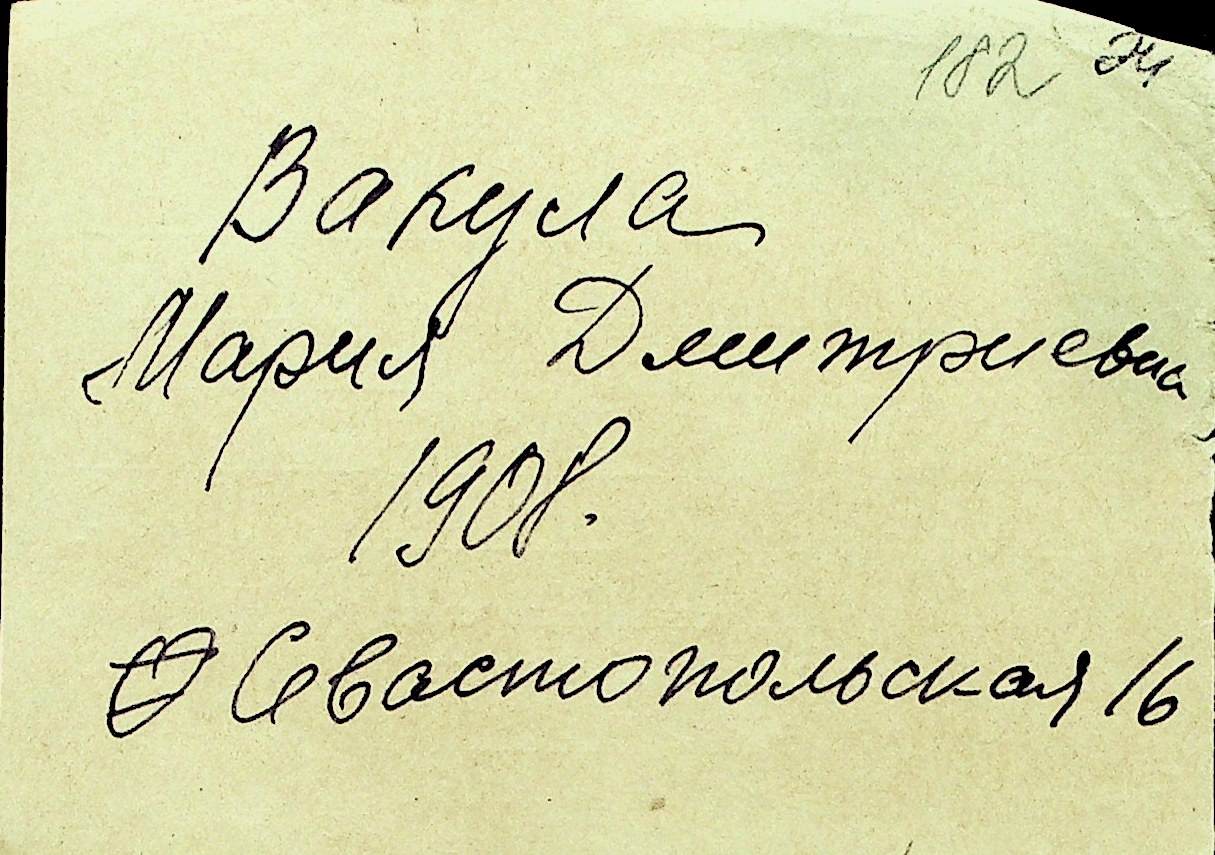 182
Вакула
Мария Дмитриевна
1908.
Севастопольская 16